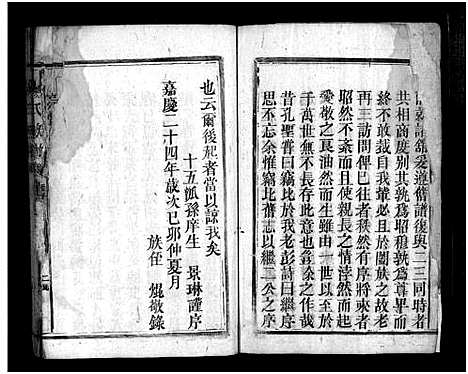 共相商度别其孰為昭穆孰為尊卑而
終不敢裁自我輩必且於闔族之故老
再三訪問俾已往者秩然有序將來者
昭然不紊而且使後之人情悖然而起
愛敬之良油然而生雖由一世以至於
千萬世無不長存此意也余之作哉
昔孔聖嘗曰竊比於我老彭詩曰繼序
思不忘余惟竊比舊志以繼二公之序
也云爾後起者當以諒我矣
十五派孫庠生 景琳謹序
嘉慶二十四年歲次已卯仲夏月
族侄 焜敬錄